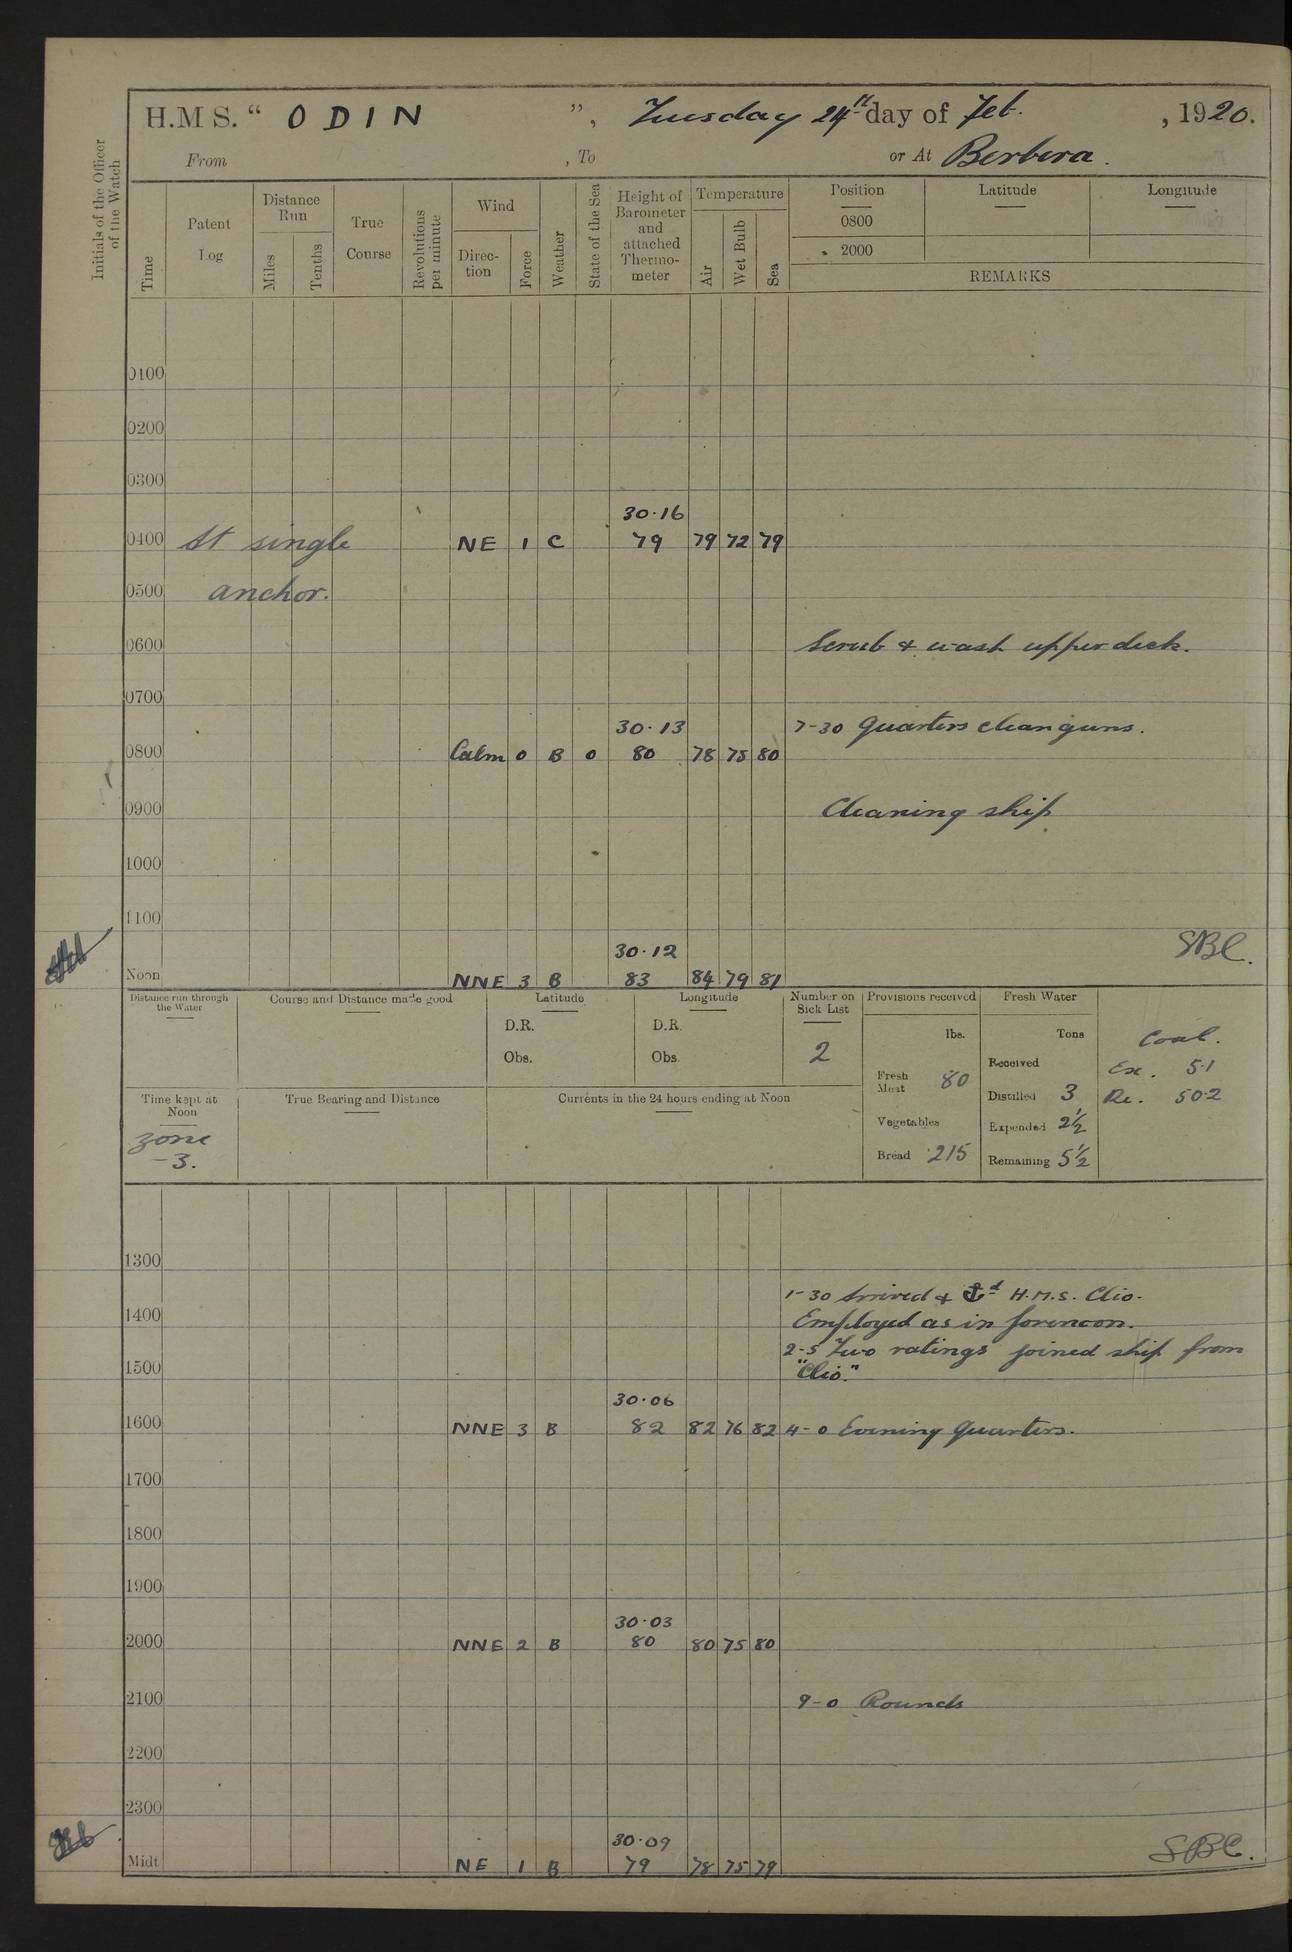 H.M S. “ ODIN ”, Tuesday 24th day of Feb. , 1920.
From , To or At Berbera.
Initials of the Officer of the Watch
Time
Patent Log
Distance Run
Miles
Tenths
True Course
Revolutions per minute
Wind
Direc-tion
Force
Weather
State of the Sea
Height of Barometer and attached Thermo-meter
Temperature
Air
Wet Bulb
Sea
Position Latitude Longitude
0800
2000
REMARKS
0100
0200
0300
30·16
0400 At single NE 1 C 79 79 72 79
0500 anchor.
0600 Scrub & wash upper deck.
0700
30·13 7-30 Quarters clean guns.
0800 Calm 0 B 0 80 78 75 80
0900 Cleaning ship
1000
1100
30·12 SBC.
Noon NNE 3 B 83 84 79 81
Distance run through the Water
Course and Distance made good
Latitude
D.R.
Obs.
Longitude
D.R.
Obs.
Number on Sick List
2
Provisions received
lbs.
Fresh Meat 80
Vegetables
Bread 215
Fresh Water
Tons
Received
Distilled 3
Expended 2½
Remaining 5½
Coal.
Ex. 5·1
Re. 50·2
Time kept at Noon
zone
-3.
True Bearing and Distance
Currents in the 24 hours ending at Noon
1300
1-30 Arrived & ⚓d H.M.S. Clio.
1400 Employed as in forenoon.
2-5 Two ratings joined ship from
1500 "Clio."
30·06
1600 NNE 3 B 82 82 76 82 4-0 Evening Quarters.
1700
1800
1900
30·03
2000 NNE 2 B 80 80 75 80
2100 9-0 Rounds
2200
2300
30·09
Midt NE 1 B 79 78 75 79 SBC.